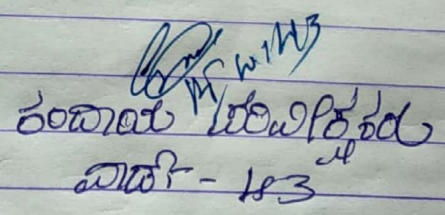 ಕಂದಾಯ ಪರಿವೀಕ್ಷಕರು
ವಾರ್ಡ್ - 43